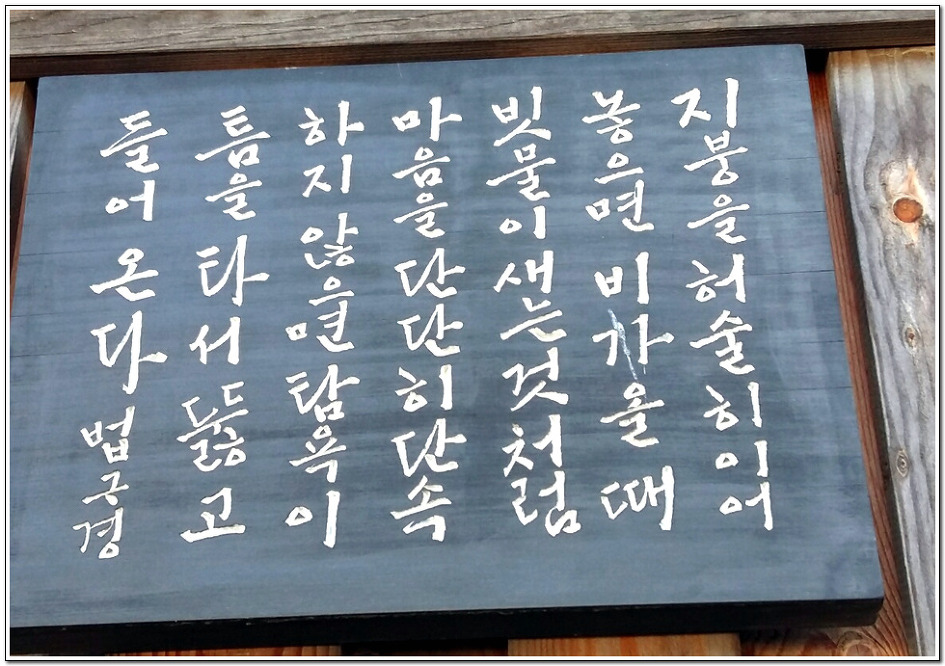 지붕을 허술히 이어
놓으면 비가 올 때
빗물이 새는것 처럼
마음을 단단히 단속
하지 않으면 탐욕이
틈을 타서 뚫고
들어 온다 법구경